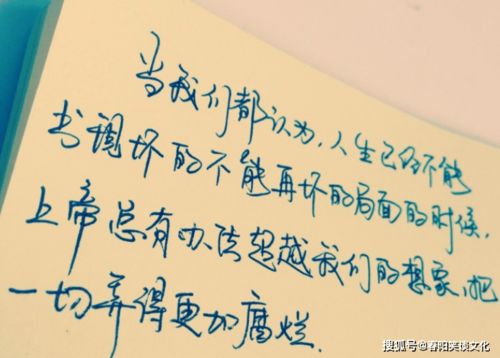 当我们都认为，人生已经不能
出现坏的不能再坏的局面的时候，
上帝总有办法超越我们的想象，把
一切弄得更加腐烂．
搜狐号@春阳笑谈文化